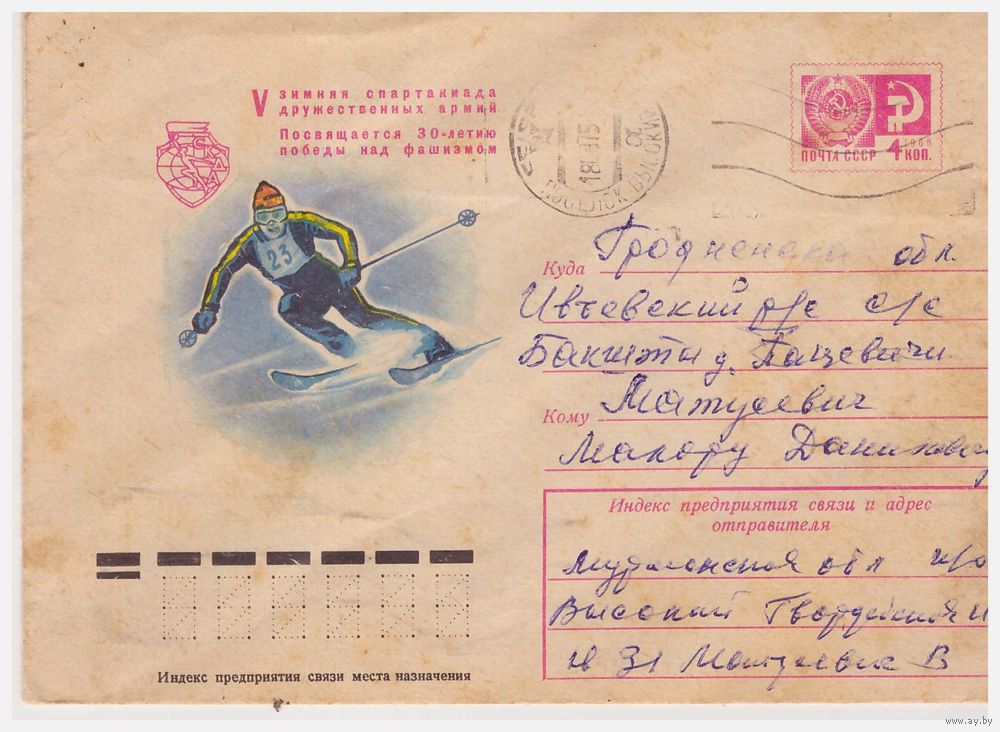 V зимняя спартакиада
дружественных армий
Посвящается 30-летию
победы над фашизмом
23
ПОСЕЛОК ВЫСОКИЙ
ПОЧТА СССР
1966
4 КОП.
Куда Гродненская обл.
Ивьевский р/с с/с
Бакшты д. Пацевичи
Кому Матусевич
Макару Данилович
Индекс предприятия связи и адрес
отправителя
Мурманская обл п/о
Высокий Гвардейская
31 Матусевич В
Индекс предприятия связи места назначения
www.ay.by